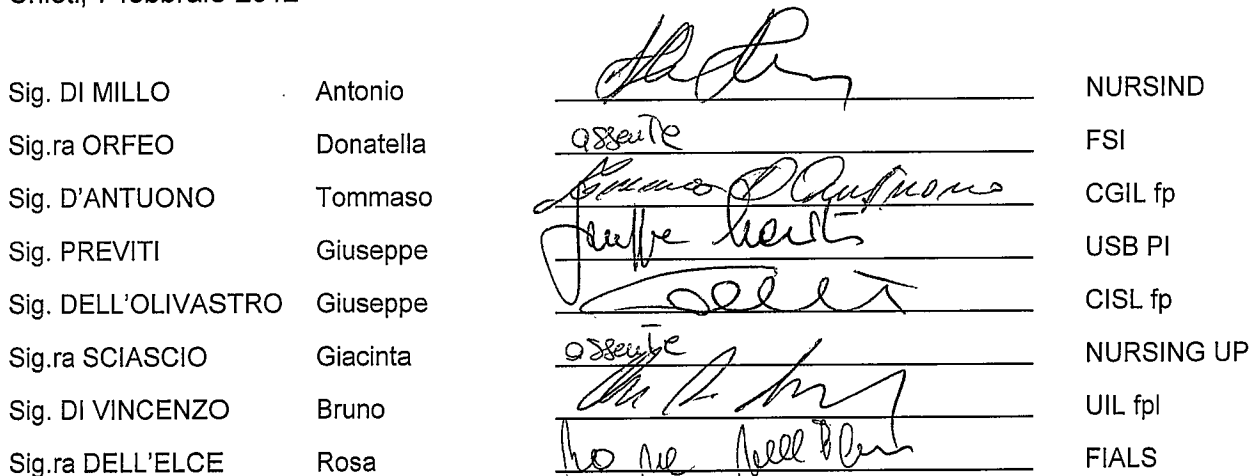 Sig. DI MILLO Antonio NURSIND
Sig.ra ORFEO Donatella assente FSI
Sig. D'ANTUONO Tommaso Tommaso D'Antuono CGIL fp
Sig. PREVITI Giuseppe USB PI
Sig. DELL'OLIVASTRO Giuseppe CISL fp
Sig.ra SCIASCIO Giacinta assente NURSING UP
Sig. DI VINCENZO Bruno UIL fpl
Sig.ra DELL'ELCE Rosa FIALS